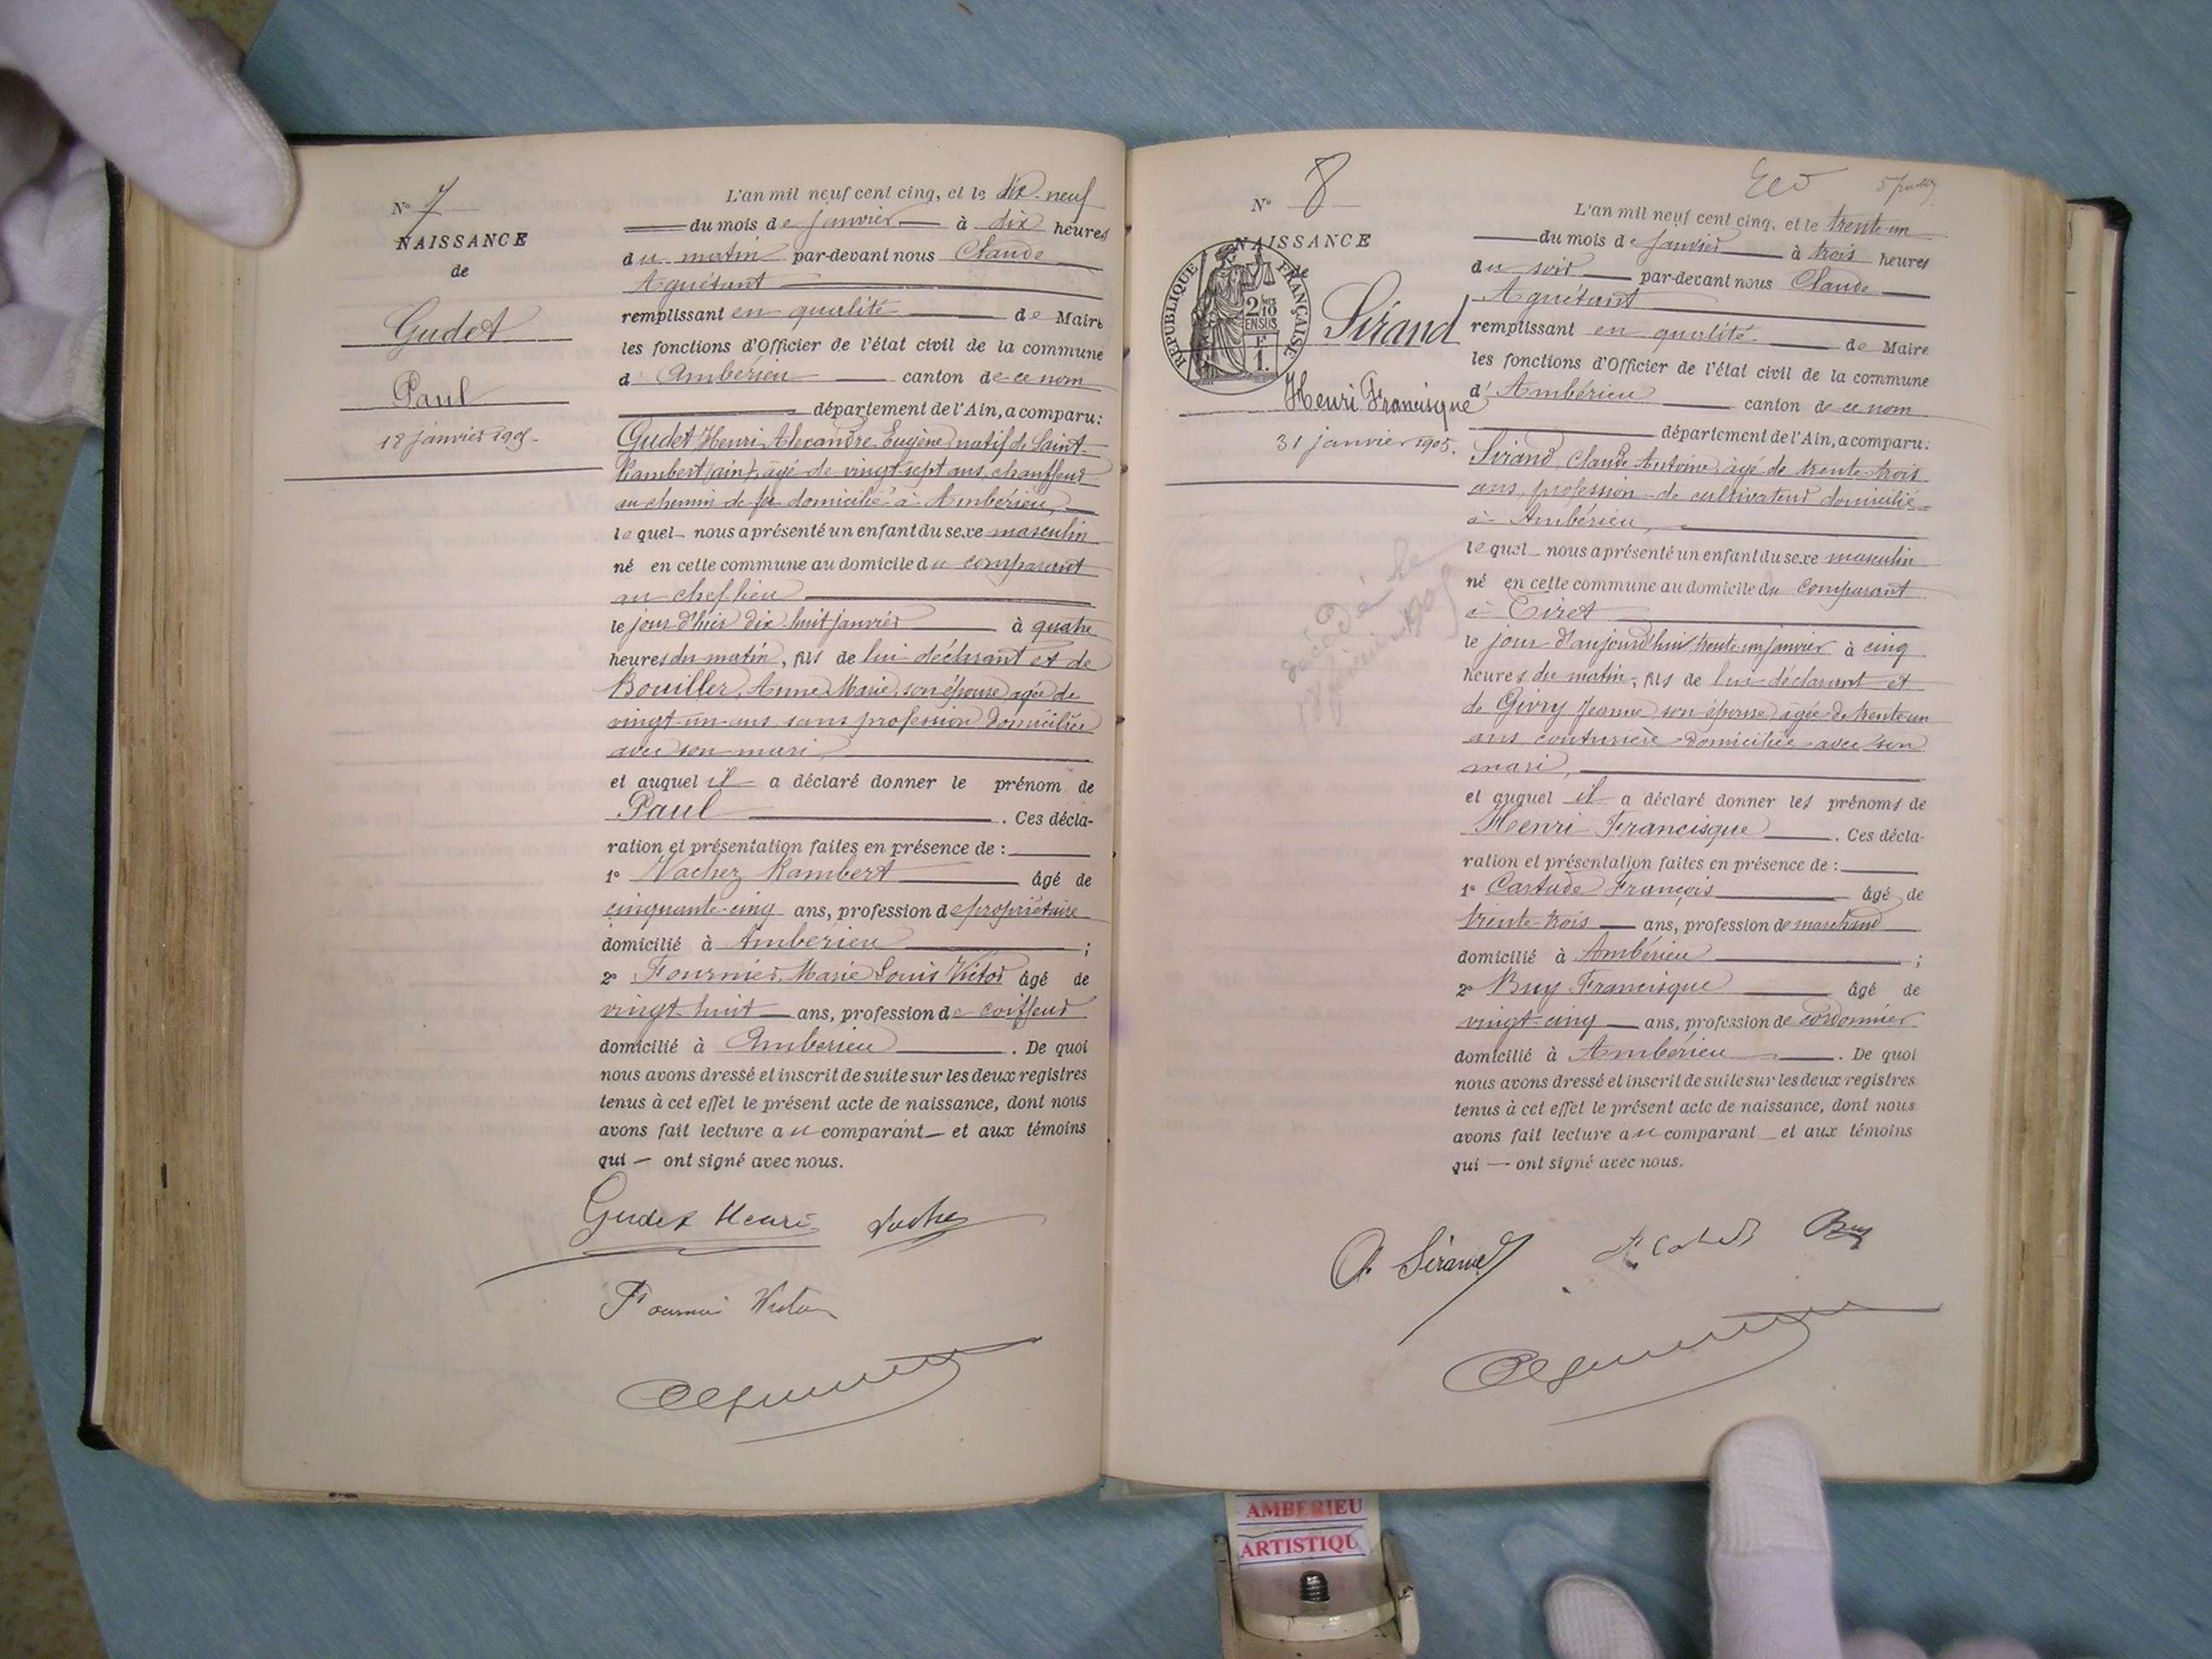 N° 7
NAISSANCE
de
Gudet
Paul
18 janvier 1905.
L'an mil neuf cent cinq, et le dix-neuf
du mois de janvier à dix heures
du matin par-devant nous Claude
Aguétant
remplissant en qualité de Maire
les fonctions d'Officier de l'état civil de la commune
d'Ambérieu canton de ce nom
département de l'Ain, a comparu:
Gudet Henri Alexandre Eugène natif de Saint-
Rambert (ain), âgé de vingt-sept ans, chauffeur
au chemin de fer domicilié à Ambérieu,
lequel nous a présenté un enfant du sexe masculin
né en cette commune au domicile du comparant
au chef lieu
le jour d'hier dix huit janvier à quatre
heures du matin, fils de lui déclarant et de
Bouiller, Anne Marie, son épouse, agée de
vingt-un ans sans profession domiciliée
avec son mari
et auquel il a déclaré donner le prénom de
Paul . Ces décla-
ration et présentation faites en présence de :
1° Vacher Rambert âgé de
cinquante-cinq ans, profession de propriétaire
domicilié à Ambérieu ;
2° Fournier, Marie Louis Victor âgé de
vingt-huit ans, profession de coiffeur
domicilié à Ambérieu . De quoi
nous avons dressé et inscrit de suite sur les deux registres
tenus à cet effet le présent acte de naissance, dont nous
avons fait lecture au comparant et aux témoins
qui — ont signé avec nous.
Gudet Henri
Fournier Victor
N° 8
NAISSANCE
de
RÉPUBLIQUE FRANÇAISE
2/10
EN SUS
F
1.
Sirand
Henri Francisque
31 janvier 1905.
décédé le
18 février 1905
L'an mil neuf cent cinq, et le trente-un
du mois de janvier à trois heures
du soir par-devant nous Claude
Aguétant
remplissant en qualité de Maire
les fonctions d'Officier de l'état civil de la commune
d'Ambérieu canton de ce nom
département de l'Ain, a comparu:
Sirand, Claude Antoine, âgé de trente-trois
ans, profession de cultivateur domicilié
à Ambérieu,
lequel nous a présenté un enfant du sexe masculin
né en cette commune au domicile du comparant
à Tiret
le jour d'aujourd'hui trente-un janvier à cinq
heures du matin, fils de lui déclarant et
de Givry Jeanne, son épouse, agée de trente-un
ans couturière domiciliée avec son
mari,
et auquel il a déclaré donner les prénoms de
Henri Francisque . Ces décla-
ration et présentation faites en présence de :
1° François âgé de
trente-trois ans, profession de marchand
domicilié à Ambérieu ;
2° Buy Francisque âgé de
vingt-cinq ans, profession de cordonnier
domicilié à Ambérieu . De quoi
nous avons dressé et inscrit de suite sur les deux registres
tenus à cet effet le présent acte de naissance, dont nous
avons fait lecture au comparant et aux témoins
qui — ont signé avec nous.
Sirand
Buy
AMBERIEU
ARTISTIQU